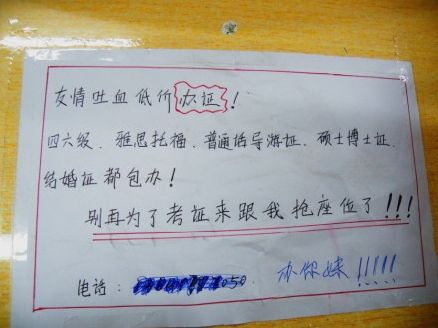 友情吐血低价办证！
四六级、雅思托福、普通话导游证、硕士博士证、
结婚证都包办！
别再为了考证来跟我抢座位了!!!
电话：050 办你妹!!!!!